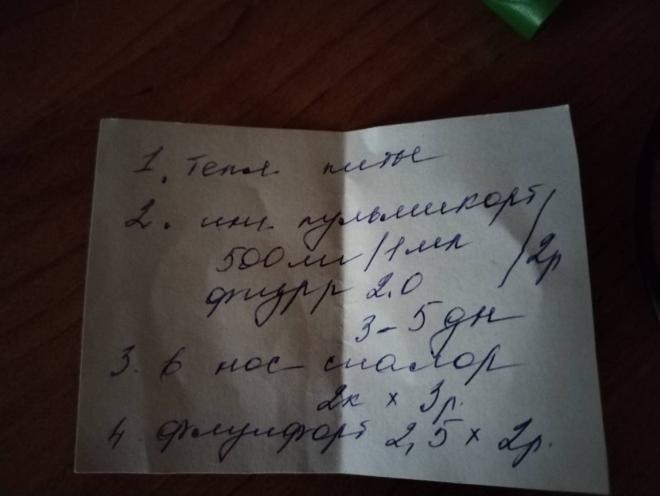 1. Тепл. питье
2. инг. пульмикорт
500 мг / 1 мл / 2р
физр р 2.0
3-5 дн
3. в нос сиалор
2к × 3р.
4. флуифорт 2,5 × 2р.